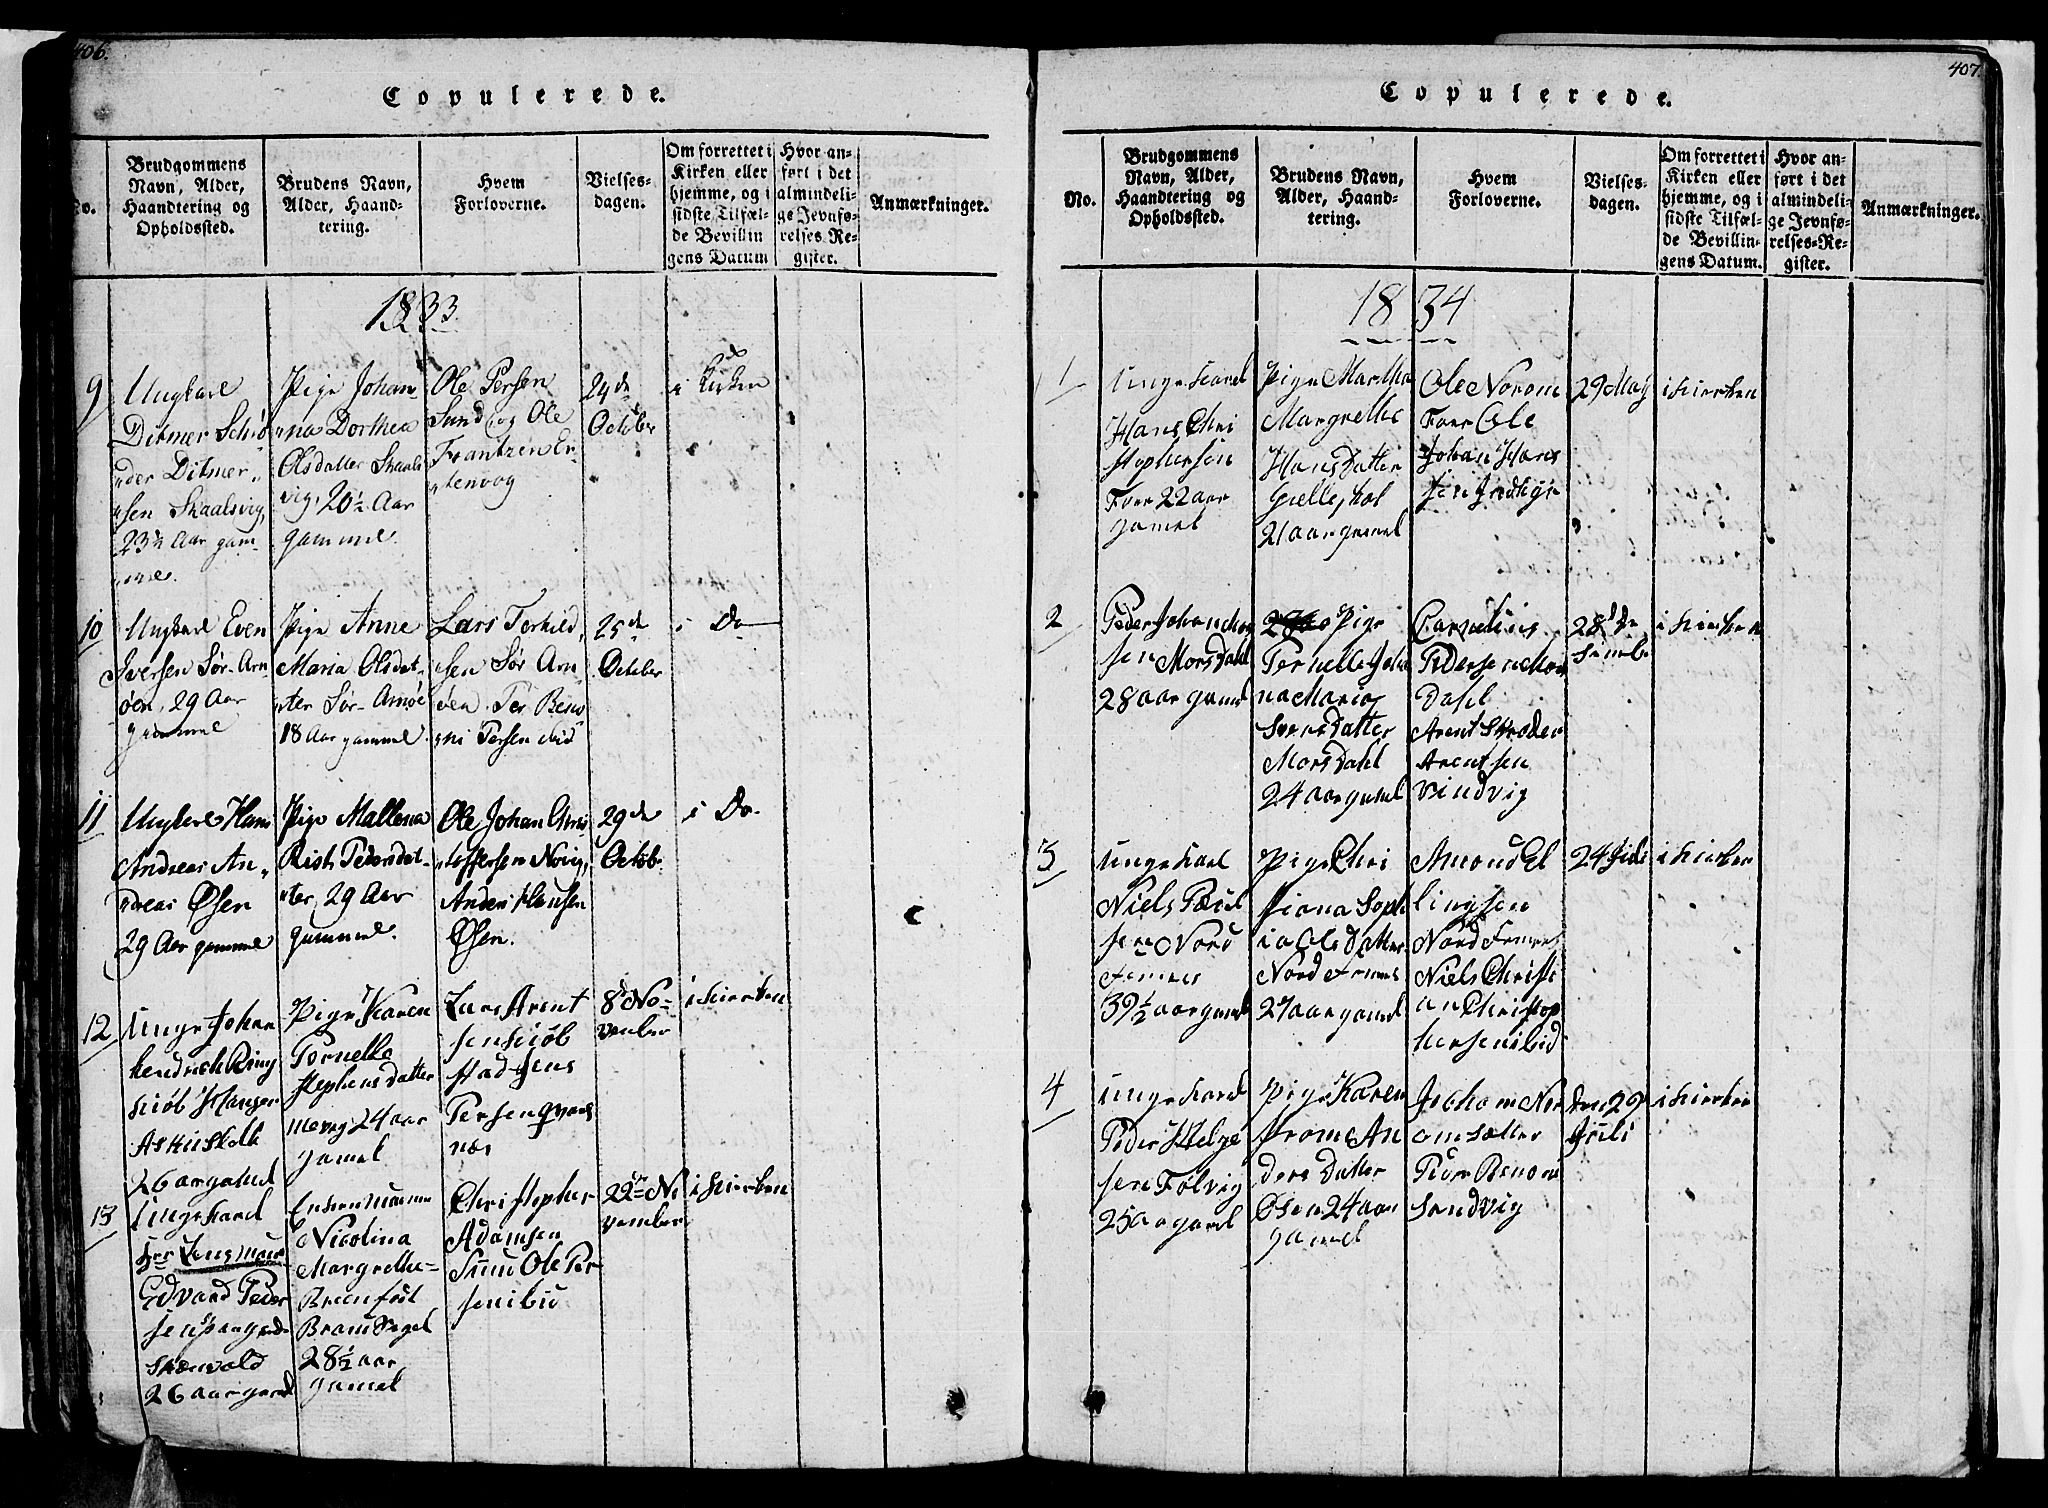 406.
Copulerede.
No.
Brudgommens
Navn, Alder,
Haandtering og
Opholdssted.
Brudens Navn,
Alder, Haand-
tering.
Hvem
Forloverne.
Vielses-
dagen.
Om forrettet i
Kirken eller
hjemme, og i
sidste Tilfæl-
de Bevillin
gens Datum
Hvor an-
ført i det
almindeli-
ge Jevnfø-
relses-Re-
gister.
Anmærkninger.
1833.
9
Ungkarl
Ditmer Schiø
der Ditmer
sen Skaalsvig,
23½ Aar gam-
me.
Pige Johan-
na Dorthea
Olsdatter Skaals
vig, 20½ Aar
gamme
Ole Persen
Sund, og Ole
Frantzen En
tenvog
24de
October
i Kirken
10
Ungkarl Even
Iversen Sør-Arn
øen, 29 Aar
gamme
Pige Anne
Maria Olsdat-
ter Sør-Arnøe
18 Aar gammel
Lars Torkild
sen Sør Arn
øen Per Beno
ni Persen ibid
25de
October
i Do
11
Ungkarl Hans
Andreas An-
dreas Øsen
29 Aar gamme
Pige Mallena
Rist Pedersdat-
ter, 29 Aar
gamme.
Ole Johan Chris
toffersen Novig,
Anders Hansen
Øsen.
29de
Octob.
i Do
12
Unge Johan
hendrich Ring
kiøb Hansen
26 aar
Pige Karen
Pernelle
Stephens datter
mevog 24 aar
gamel
Lars Arent
sen kiøb
stad Jens
Persen qvars
næs
8de No
vember
i kierken
13
Unge karl
Hr Jens
Edvard Peder
sen
26 aar gamel
Nicolina
Margrethe
28½ aar
gamel
Christopher
Adamsen
Sund Ole Per
sen ibid
22de No
vember
i kierken
407.
Copulerede.
No.
Brudgommens
Navn, Alder,
Haandtering og
Opholdssted.
Brudens Navn,
Alder, Haand-
tering.
Hvem
Forloverne.
Vielses-
dagen.
Om forrettet i
Kirken eller
hjemme, og i
sidste Tilfæl-
de Bevillin-
gens Datum.
Hvor an-
ført i det
almindeli-
ge Jevnfø-
relses-Re-
gister.
Anmærkninger.
1834
1
Unge karl
Hans Chri
stophersen
Foer 22 aar
gamel
Pige Martha
Margrethe
Hans Datter
Gielleskol
21 aar gamel
Ole Norom
Foer Ole
Johan Hans
sen Indhge
29 May
i kierken
2
Peder Johanche
sen Morsdahl
28 aar gamel
Pige
Pernelle Joha
na Maria
Svens Datter
Morsdahl
24 aar gamel
Cornelius
Pedersen Mors
Dahl
Arent Skroder
Arentsen
vindvig
28de
i kierken
3
Unge karl
Niels Paul
sen Nord
39½ aar gamel
Pige Chri
stiana Soph
ia Ols Datter
Nord
27 aar gamel
Amond El
lingsen
Nord
Niels Christi
an Christop
hersen ibid
24 Juli
i kierken
4
Unge karl
Peder Helge
sen Folvig
25 aar gamel
Pige Karen
An
ders Datter
Øsen 24 aar
gamel
Jochom Nor
om Sætter
Peder Benoni
Sandvig
den 29
Juli
i kierken